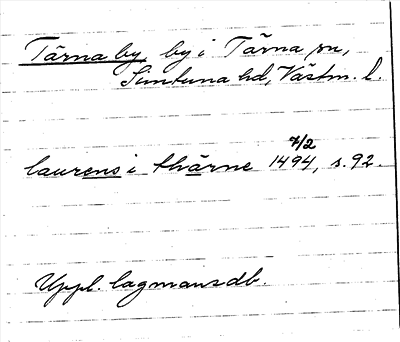 Tärna by by i Tärna sn,
Simtuna hd, Västm. l.
laurens i thärne 1494, s. 92.
7/2
Uppl. lagmansdb.